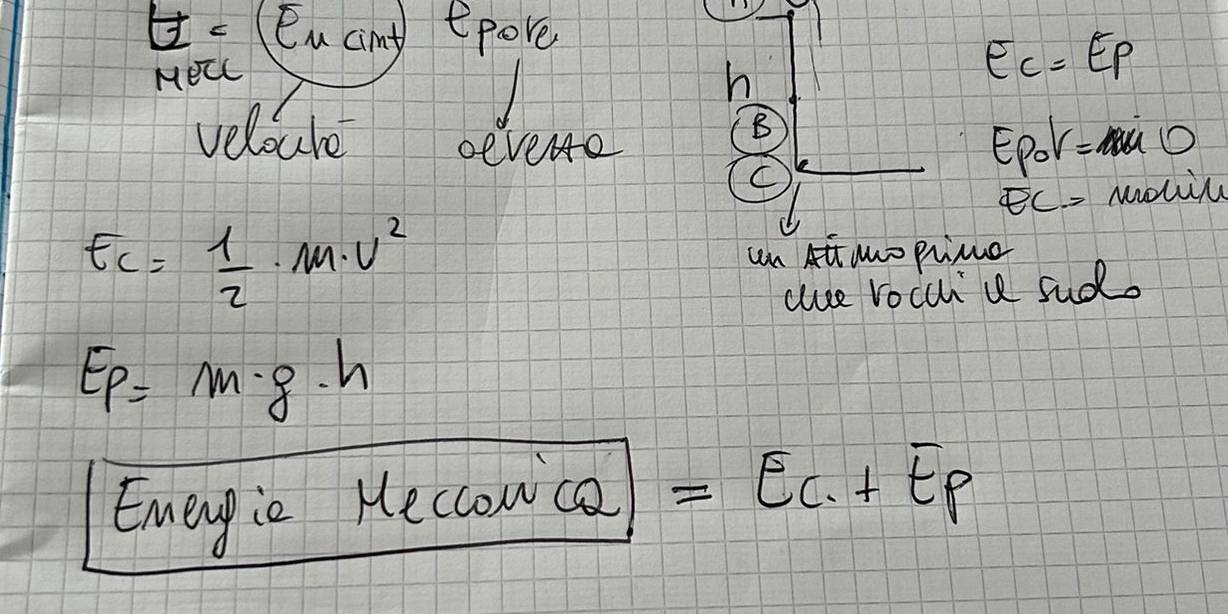 E = En cint Epote
Mecc
velocità altezza
h
B
C
Ec = Ep
Epot = 0
Ec =
un Attimo prima
che tocchi il suolo
Ec = 1/2 · m · v²
Ep = m · g · h
Energia Meccanica = Ec. + Ep